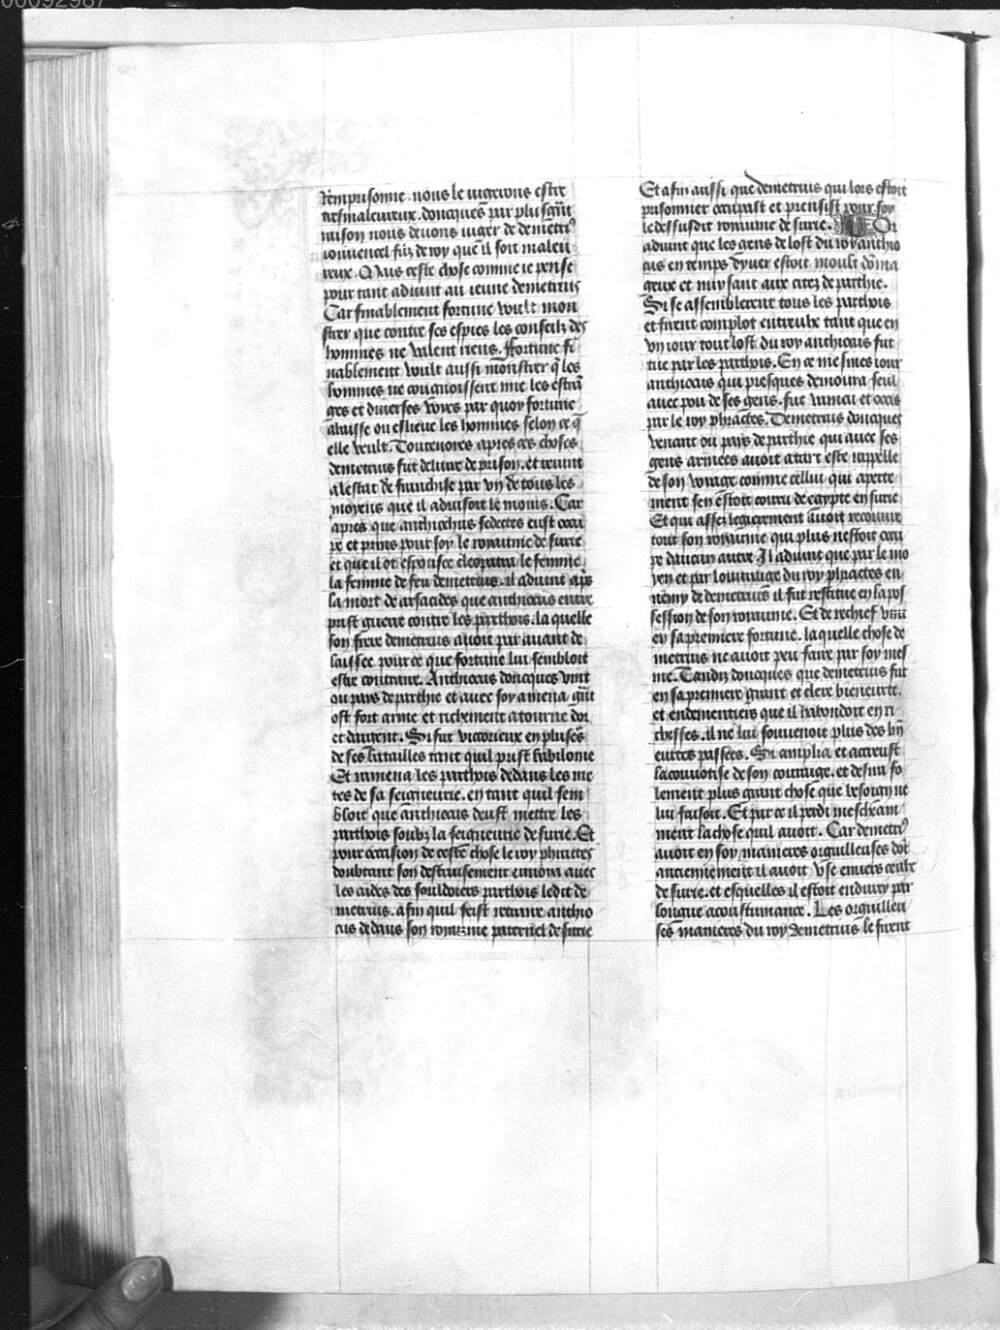 00092987
lemprisonne nous le iugerions estre
tresmaleureux. doncques par plus grãt
raison nous deuons iuger de demetri⁹
iouuencel filz de roy que il soit maleu
reux. Mais ceste chose comme ie pense
pour tant aduint au ieune demetrius
Car finablement fortune voult mon
strer que contre ses espies les conseilz des
hommes ne valent riens. Fortune fi
nablement voult aussi monstrer q̃ les
hommes ne congnoissent mie les estrã
ges et diuerses voyes par quoy fortune
abaisse ou eslieue les hommes selon ce q̃
elle veult. Toutesuoies apres ces choses
demetrius fut deliure de prison. et reuint
a lestat de franchise par vn de tous les
moyens que il aduisoit le moins. Car
apres que anthiochus sedetes eust occu
pe et prins pour soy le royaume de surie
et que il ot espousee cleopatra le femme
la femme de feu demetrius. il aduint aps̃
la mort de arsacides que anthiocus entre
prist guerre contre les parthois. la quelle
son frere demetrius auoit par auant de
laissee pour ce que fortune lui sembloit
estre contraire. Anthiocus doncques vint
ou pays de parthie et auec soy amena grãt
ost fort arme et richement atourne dor
et dargent. Si fut victorieux en pluseʳˢ
de ses batailles tant quil prist babilonie
Et ramena les parthois dedans les me
tes de sa seigneurie. en tant quil sem
bloit que anthiocus deust mettre les
parthois soubz la seigneurie de surie. Et
pour occasion de ceste chose le roy phractes
doubtant son destruisement enuoia auec
les aides des souldoiers parthois ledit de
metrius. afin quil feist retraire anthio
cus dedans son royaume paternel de surie
Et afin aussi que demetrius qui lors estoit
prisonnier occupast et prensist pour soy
le dessusdit royaume de surie. Or
aduint que les gens de lost du roy anthio
cus en temps dyuer estoit moult dõma
geux et nuysant aux citez de parthie.
Si se assemblerent tous les parthois
et firent complot entreulx tant que en
vn iour tout lost du roy anthiocus fut
tue par les parthois. En ce mesmes iour
anthiocus qui presques demoura seul
auec pou de ses gens. fut vaincu et occis
par le roy phractes. Demetrius doncques
venant ou pays de parthie qui auec ses
gens armees auoit a tart este rappelle
de son voyage comme cellui qui aperte
ment sen estoit couru de egypte en surie
Et qui assez legierement auoit recouure
tout son royaume qui plus nestoit occu
pe daucun autre. Il aduint que par le mo
yen et par louurage du roy phractes en
nemy de demetrius il fut restitue en la pos
session de son royaume. Et de rechief vint
en sa premiere fortune. la quelle chose de
metrius ne auoit peu faire par soy mes
me. Tandiz doncques que demetrius fut
en sa premiere grant et clere bieneurte.
et endementiers que il habondoit en ri
chesses. il ne lui souuenoit plus des bñ
eurtes passees. Si amplia et accreust
la couuoitise de son couraige. et desira fo
lement plus grant chose que besoing ne
lui faisoit. Et par ce il perdi meschãm
ment la chose quil auoit. Car demetri⁹
auoit en soy manieres orguilleuses dõt
anciennement il auoit vse enuers ceulx
de surie. et esquelles il estoit endurcy par
longue acoustumance. Les orguilleu
ses manieres du roy demetrius le firent